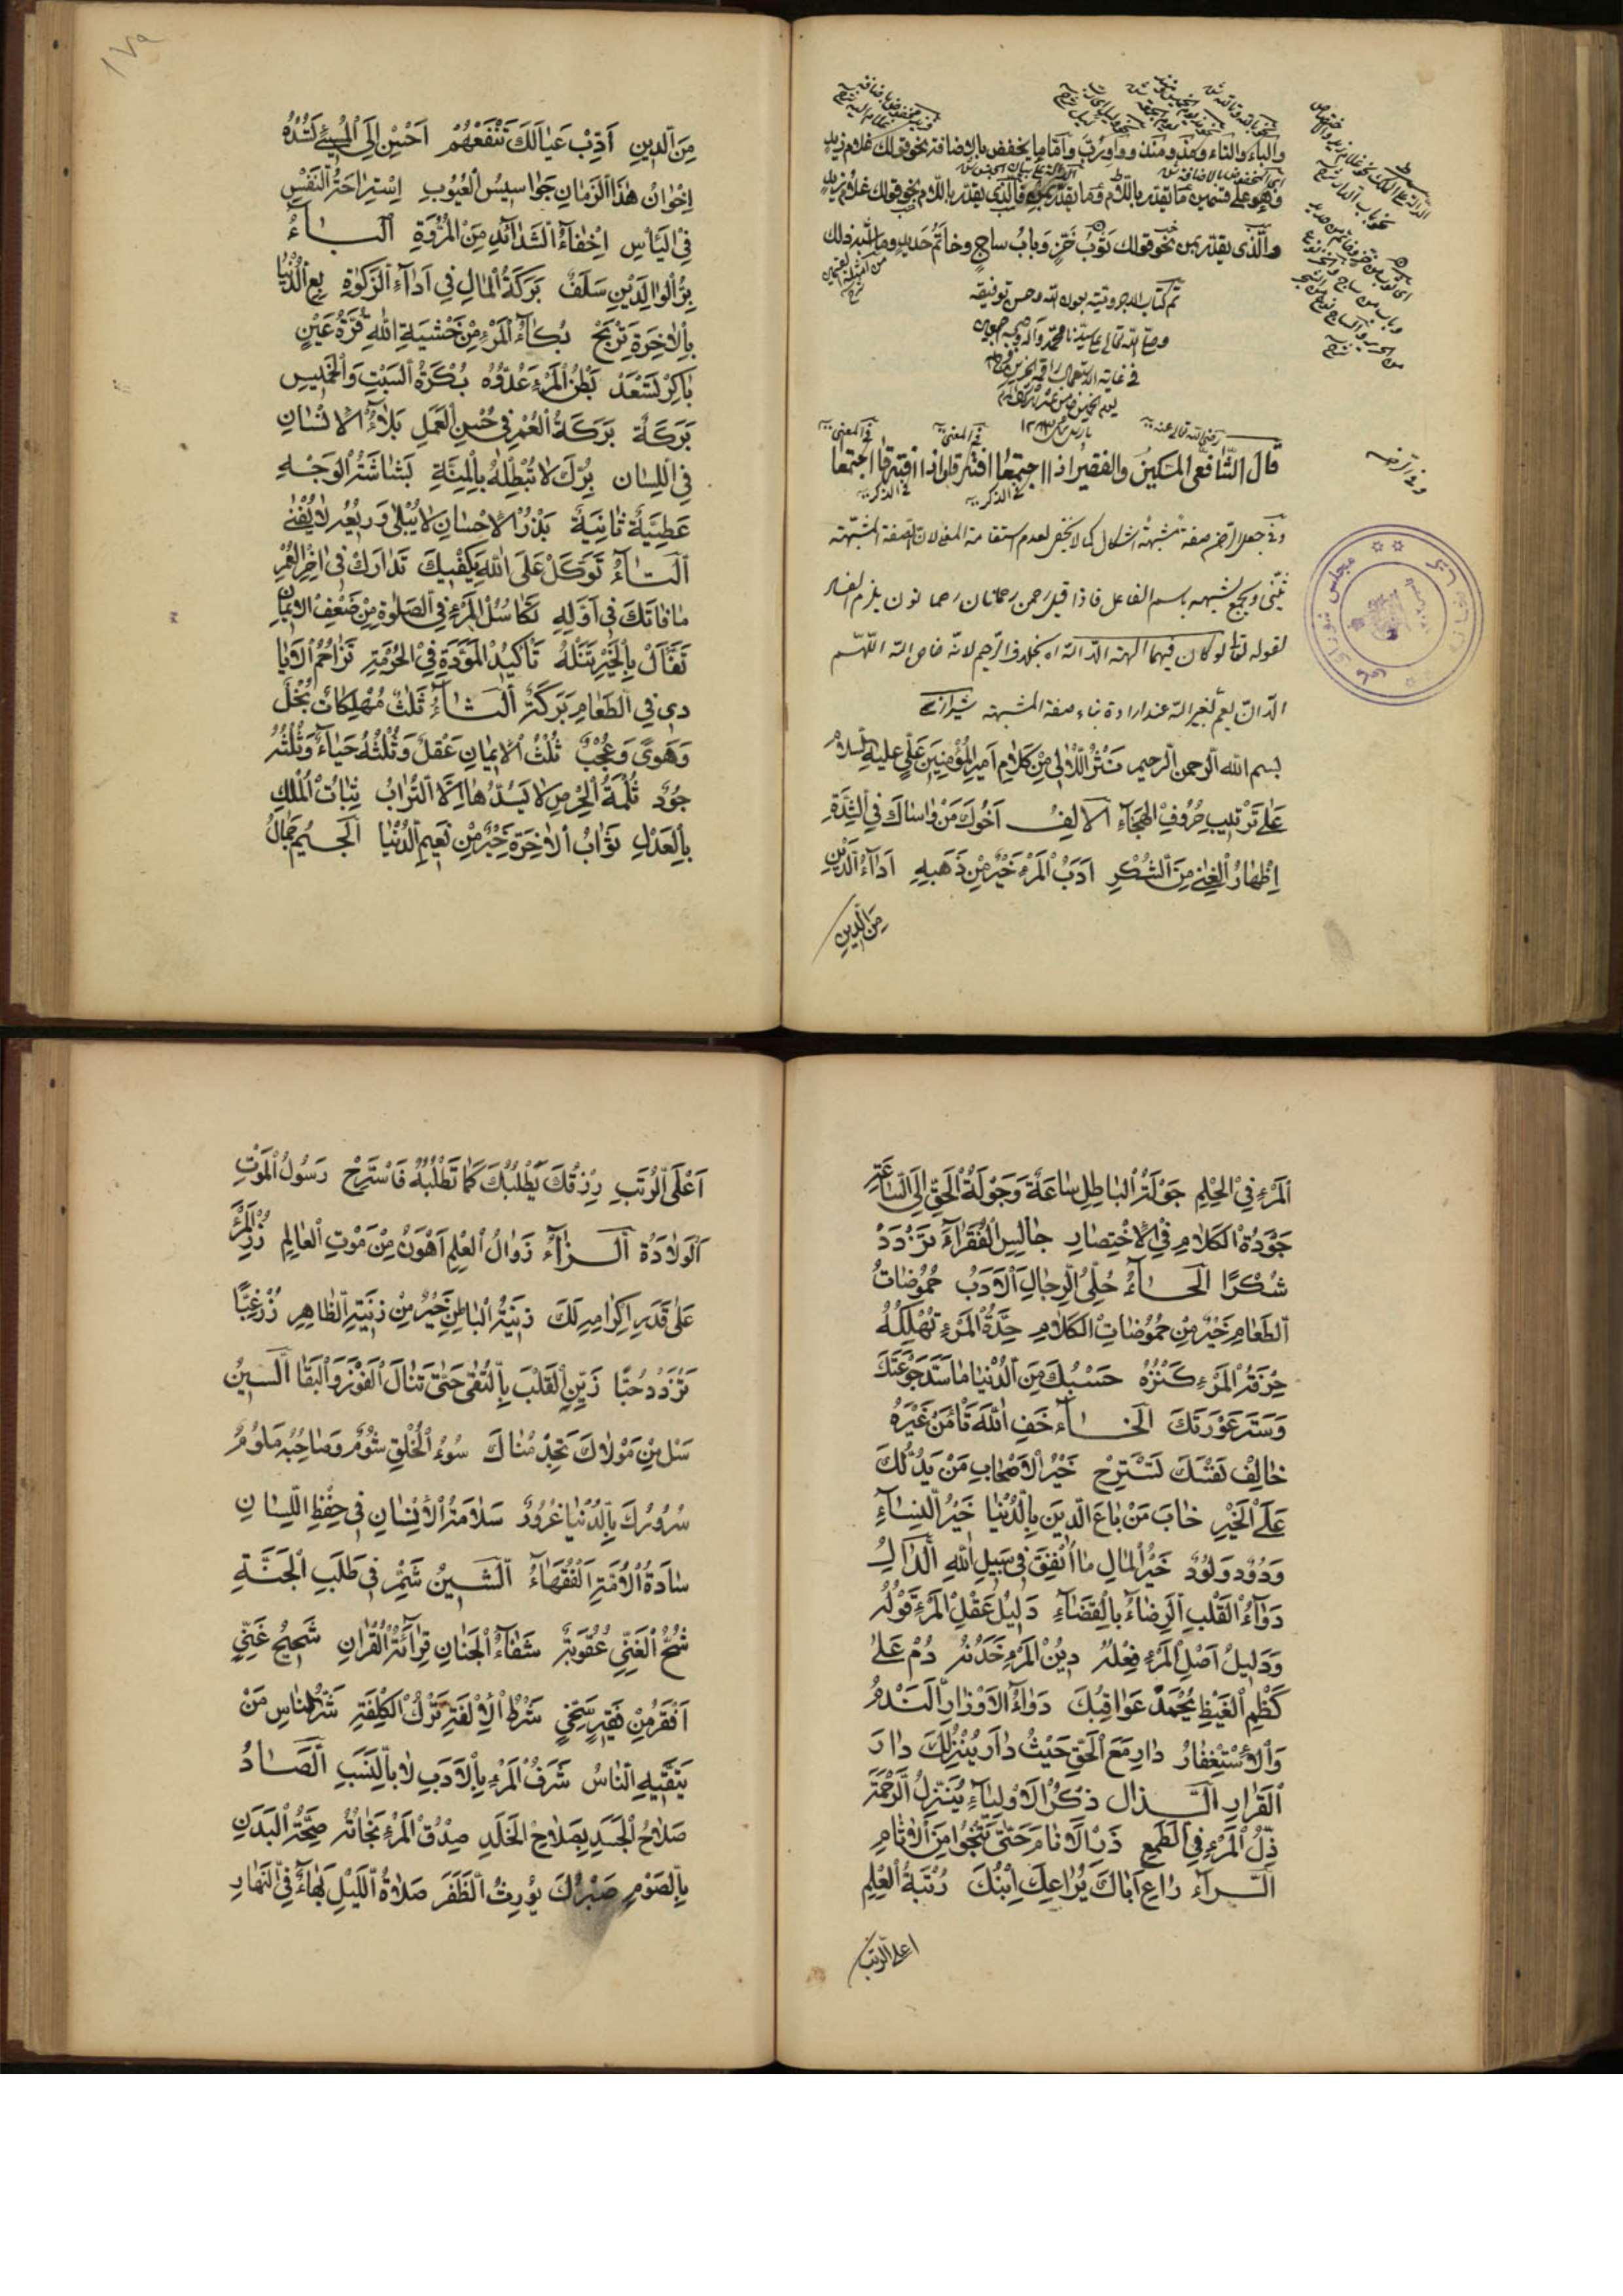 والباء والتاء ومذ ومنذ وواو رب وأما ما يخفض بالاضافة نحو قولك غلام زيد
وهو على قسمين ما يقدر باللام وما يقدر بمن فالذي يقدر باللام نحو قولك غلام زيد
والذي يقدر بمن نحو قولك ثوب خز وباب ساج وخاتم حديد وما اشبه ذلك
تم كتاب الاجرومية بعون الله وحسن توفيقه
وصلى الله تعالى على سيدنا محمد وآله وصحبه اجمعين
قال الشافعي رضي الله تعالى عنه المسكين والفقير اذا اجتمعا افترقا واذا افترقا اجتمعا
وفي جعل الرحمن صفة مشبهة اشكال كما لا يخفى لعدم استقامة المعنى لان الصفة المشبهة
تثنى وتجمع لشبهه باسم الفاعل فاذا قيل رحمن رحمانان رحمانون يلزم الفساد
لقوله تعالى لو كان فيهما الهة الا الله اه بخلاف الرحيم لانه خاص الله اللهم
بسم الله الرحمن الرحيم نَثْرُ اللَّآلِي مِنْ كَلَامِ اَمِيرِ الْمُؤْمِنِينَ عَلِيٍّ عليه السلام
عَلَى تَرْتِيبِ حُرُوفِ الْهِجَاءِ اَلْاَلِفُ اَخُوكَ مَنْ وَاسَاكَ فِي الشِّدَّةِ
اِظْهَارُ الْغِنٰى مِنَ الشُّكْرِ اَدَبُ الْمَرْءِ خَيْرٌ مِنْ ذَهَبِهِ اَدَاءُ الدَّيْنِ
مِنَ الدِّينِ
١٧٩
مِنَ الدِّينِ اَدِّبْ عِيَالَكَ تَنْفَعْهُمْ اَحْسِنْ اِلَى الْمُسِيءِ تَسُدْهُ
اِخْوَانُ هٰذَا الزَّمَانِ جَوَاسِيسُ الْعُيُوبِ اِسْتِرَاحَةُ النَّفْسِ
فِي الْيَأْسِ اِخْفَاءُ الشَّدَائِدِ مِنَ الْمُرُوَّةِ اَلْبَاءُ
بِرُّ الْوَالِدَيْنِ سَلَفٌ بَرَكَةُ الْمَالِ فِي اَدَاءِ الزَّكٰوةِ بِعِ الدُّنْيَا
بِالْاٰخِرَةِ تَرْبَحْ بُكَاءُ الْمَرْءِ مِنْ خَشْيَةِ اللهِ قُرَّةُ عَيْنٍ
بَاكِرْ تَسْعَدْ بَطْنُ الْمَرْءِ عَدُوُّهُ بُكْرَةُ السَّبْتِ وَالْخَمِيسِ
بَرَكَةٌ بَرَكَةُ الْعُمْرِ فِي حُسْنِ الْعَمَلِ بَلَاءُ الْاِنْسَانِ
فِي اللِّسَانِ بِرُّكَ لَا تُبْطِلْهُ بِالْمِنَّةِ بَشَاشَةُ الْوَجْهِ
عَطِيَّةٌ ثَانِيَةٌ بَذْرُ الْاِحْسَانِ لَا يُبْلٰى وَرَيْعُهُ لَا يُفْنٰى
اَلتَّاءُ تَوَكَّلْ عَلَى اللهِ يَكْفِيكَ تَدَارَكْ فِي اٰخِرِ الْعُمْرِ
مَا فَاتَكَ فِي اَوَّلِهِ تَكَاسُلُ الْمَرْءِ فِي الصَّلٰوةِ مِنْ ضَعْفِ الْاِيمَانِ
تَفَأَّلْ بِالْخَيْرِ تَنَلْهُ تَأْكِيدُ الْمَوَدَّةِ فِي الْحُرْمَةِ تَزَاحُمُ الْاَيَا
دِي فِي الطَّعَامِ بَرَكَةٌ اَلثَّاءُ ثَلٰثٌ مُهْلِكَاتٌ بُخْلٌ
وَهَوًى وَعُجْبٌ ثُلُثُ الْاِيمَانِ عَقْلٌ وَثُلُثُهُ حَيَاءٌ وَثُلُثُهُ
جُودٌ ثُلْمَةُ الْحِرْصِ لَا يَسُدُّهَا اِلَّا التُّرَابُ ثَبَاتُ الْمُلْكِ
بِالْعَدْلِ ثَوَابُ الْاٰخِرَةِ خَيْرٌ مِنْ نَعِيمِ الدُّنْيَا اَلْجِيمُ جَمَالُ
اَلْمَرْءِ فِي الْحِلْمِ جَوْلَةُ الْبَاطِلِ سَاعَةٌ وَجَوْلَةُ الْحَقِّ اِلَى السَّاعَةِ
جَوْدَةُ الْكَلَامِ فِي الْاِخْتِصَارِ جَالِسِ الْفُقَرَاءَ تَزْدَدْ
شُكْرًا اَلْحَاءُ حُلِيُّ الرِّجَالِ اَلْاَدَبُ حُمُوضَاتُ
الطَّعَامِ خَيْرٌ مِنْ حُمُوضَاتِ الْكَلَامِ حِدَّةُ الْمَرْءِ تُهْلِكُهُ
حِرْفَةُ الْمَرْءِ كَنْزُهُ حَسْبُكَ مِنَ الدُّنْيَا مَا سَدَّ جَوْعَتَكَ
وَسَتَرَ عَوْرَتَكَ اَلْخَاءُ خَفِ اللهَ تَأْمَنْ غَيْرَهُ
خَالِفْ نَفْسَكَ تَسْتَرِحْ خَيْرُ الْاَصْحَابِ مَنْ يَدُلُّكَ
عَلَى الْخَيْرِ خَابَ مَنْ بَاعَ الدِّينَ بِالدُّنْيَا خَيْرُ النِّسَاءِ
وَدُودٌ وَلُودٌ خَيْرُ الْمَالِ مَا اُنْفِقَ فِي سَبِيلِ اللهِ اَلدَّالُ
دَوَاءُ الْقَلْبِ اَلرِّضَاءُ بِالْقَضَاءِ دَلِيلُ عَقْلِ الْمَرْءِ قَوْلُهُ
وَدَلِيلُ اَصْلِ الْمَرْءِ فِعْلُهُ دِينُ الْمَرْءِ خَدَنُهُ دُمْ عَلٰى
كَظْمِ الْغَيْظِ يُحْمَدْ عَوَاقِبُكَ دَوَاءُ الْاَوْزَارِ اَلنَّدَمُ
وَالْاِسْتِغْفَارُ دَارِ مَعَ الْحَقِّ حَيْثُ دَارَ يُنْزِلْكَ دَارَ
الْقَرَارِ اَلذَّالُ ذِكْرُ الْاَوْلِيَاءِ يُنْزِلُ الرَّحْمَةَ
ذُلُّ الْمَرْءِ فِي الطَّمَعِ ذَرِ الْاَنَامَ حَتّٰى تَنْجُوَا مِنَ الْاٰثَامِ
اَلرَّاءُ رَاعِ اَبَاكَ يُرَاعِكَ اِبْنُكَ رُتْبَةُ الْعِلْمِ
اعلى الرتب
اَعْلَى الرُّتَبِ رِزْقُكَ يَطْلُبُكَ كَمَا تَطْلُبُهُ فَاسْتَرِحْ رَسُولُ الْمَوْتِ
اَلْوِلَادَةُ اَلزَّاءُ زَوَالُ الْعِلْمِ اَهْوَنُ مِنْ مَوْتِ الْعَالِمِ زُرِ الْمَرْءَ
عَلٰى قَدَرِ اِكْرَامِهِ لَكَ زِينَةُ الْبَاطِنِ خَيْرٌ مِنْ زِينَةِ الظَّاهِرِ زُرْ غِبًّا
تَزْدَدْ حُبًّا زَيِّنِ الْقَلْبَ بِالتُّقٰى حَتّٰى تَنَالَ الْفَوْزَ وَالْبَقَا اَلسِّينُ
سَلْ مِنْ مَوْلَاكَ تَجِدْ مُنَاكَ سُوءُ الْخُلْقِ شُومٌ وَصَاحِبُهُ مَلُومٌ
سُرُورُكَ بِالدُّنْيَا غُرُورٌ سَلَامَةُ الْاِنْسَانِ فِي حِفْظِ اللِّسَانِ
سَادَةُ الْاُمَّةِ الْفُقَهَاءُ اَلشِّينُ شَمِّرْ فِي طَلَبِ الْجَنَّةِ
شُحُّ الْغَنِيِّ عُقُوبَةٌ شَفَاءُ الْجَنَانِ قِرَائَةُ الْقُرْاٰنِ شَحِيحٌ غَنِيٌّ
اَفْقَرُ مِنْ فَقِيرٍ سَخِيٍّ شَرْطُ الْاُلْفَةِ تَرْكُ الْكُلْفَةِ شَرُّ النَّاسِ مَنْ
يَتَّقِيهِ النَّاسُ شَرَفُ الْمَرْءِ بِالْاَدَبِ لَا بِالنَّسَبِ اَلصَّادُ
صَلَاحُ الْجَسَدِ بِصَلَاحِ الْخَلَدِ صِدْقُ الْمَرْءِ نَجَاتُهُ صِحَّةُ الْبَدَنِ
بِالصَّوْمِ صَبْرُكَ يُورِثُ الظَّفَرَ صَلَاةُ اللَّيْلِ بَهَاءٌ فِي النَّهَارِ